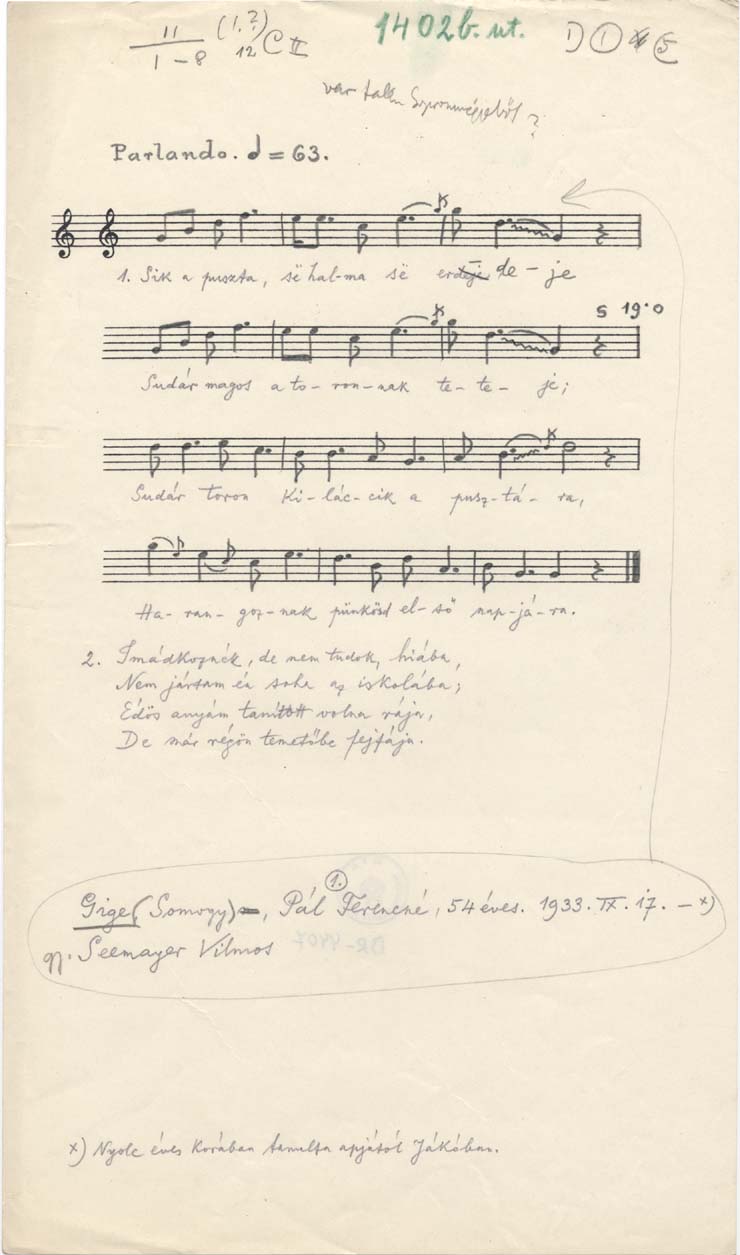 11 (1.?) C II
1-8 12
1402b. ut.
D 1 5
var. talán Sopronmegyéből?
Parlando. = 63.
1. Sik a puszta, së hal-ma së erdeje de-je
S 19·0
Sudár magos a to-ron-nak te-te-je;
Sudár toron Ki-lác-cik a pusz-tá-ra,
Ha-ran-goz-nak pünkösd el-ső nap-já-ra.
2. Imádkoznék, de nem tudok, hiába,
Nem jártam én soha az iskolába;
Édös anyám tanított volna rája,
De már régön temetőbe fejfája.
1.
Gige (Somogy), Pál Ferencné, 54 éves. 1933. IX. 17. – x)
gy. Seemayer Vilmos
x) Nyolc éves korában tanulta apjától Jákóban.